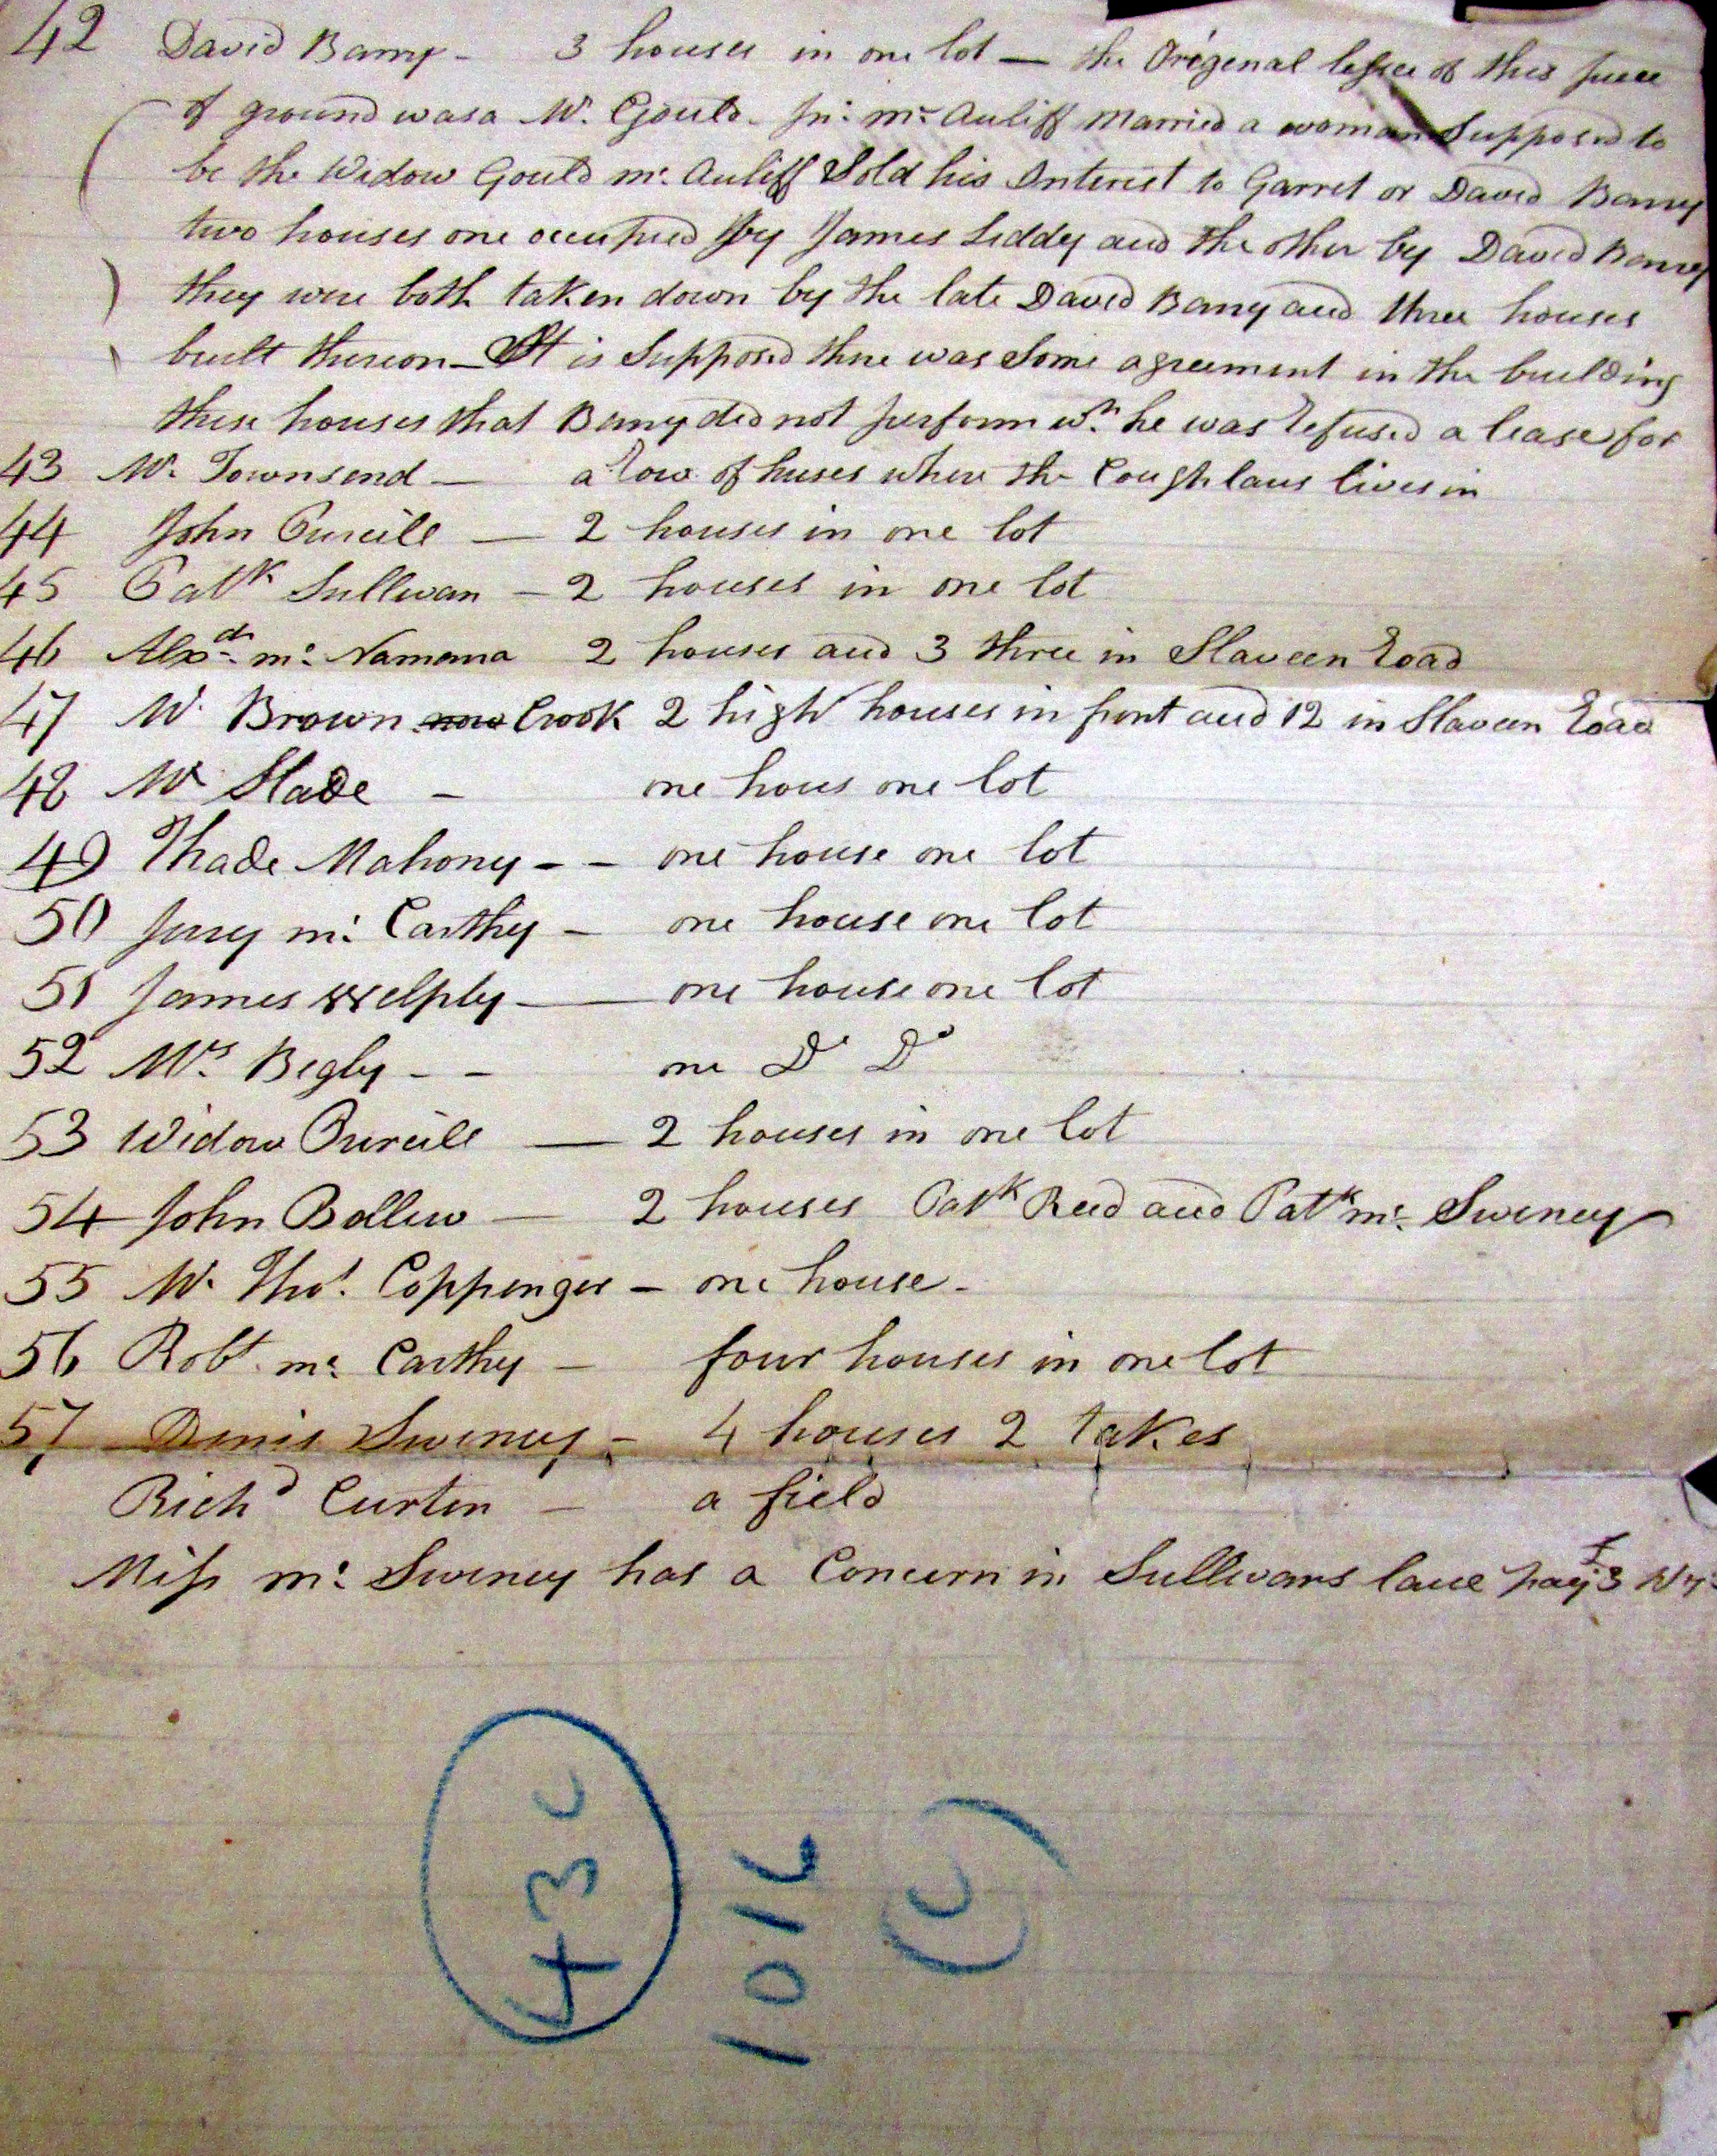 42 David Barry - 3 houses in one lot — the Origenal lessee of this piece
of ground was a Mr. Gould. Jn: mc Auliff Married a woman Supposed to
be the Widow Gould mc. Auliff Sold his Interest to Garret or David Barry
two houses one occupied by James Liddy and the other by David Barry
they were both taken down by the late David Barry and three houses
built thereon - It is Supposed there was Some agreement in the building
these houses that Barry did not perform wn. he was refused a lease for
43 Mr. Townsend — a row of huses where the Coughlans lives in
44 John Purcill — 2 houses in one lot
45 Patk Sullivan - 2 houses in one lot
46 Alexdr. mc. Namara 2 houses and 3 three in Slaveen Road
47 Mr. Brown now Crook 2 high houses in front and 12 in Slaveen Road
48 Mr Slade - one hous one lot
49 Thade Mahony - - one house one lot
50 Jerry mc: Carthy - one house one lot
51 James Welply — one house one lot
52 Mrs. Begly - - one Do Do
53 Widow Purcill — 2 houses in one lot
54 John Bollew — 2 houses Patk Reed and Patk mc. Swiney
55 Mr. Thos. Coppenger - one house -
56 Robt. mc: Carthy - four houses in one lot
57 Denis Swiney - 4 houses 2 takes
Richd Curten - a field
Miss mc: Swiney has a Concern in Sullivans lane pays £3
43C
1016
(C)